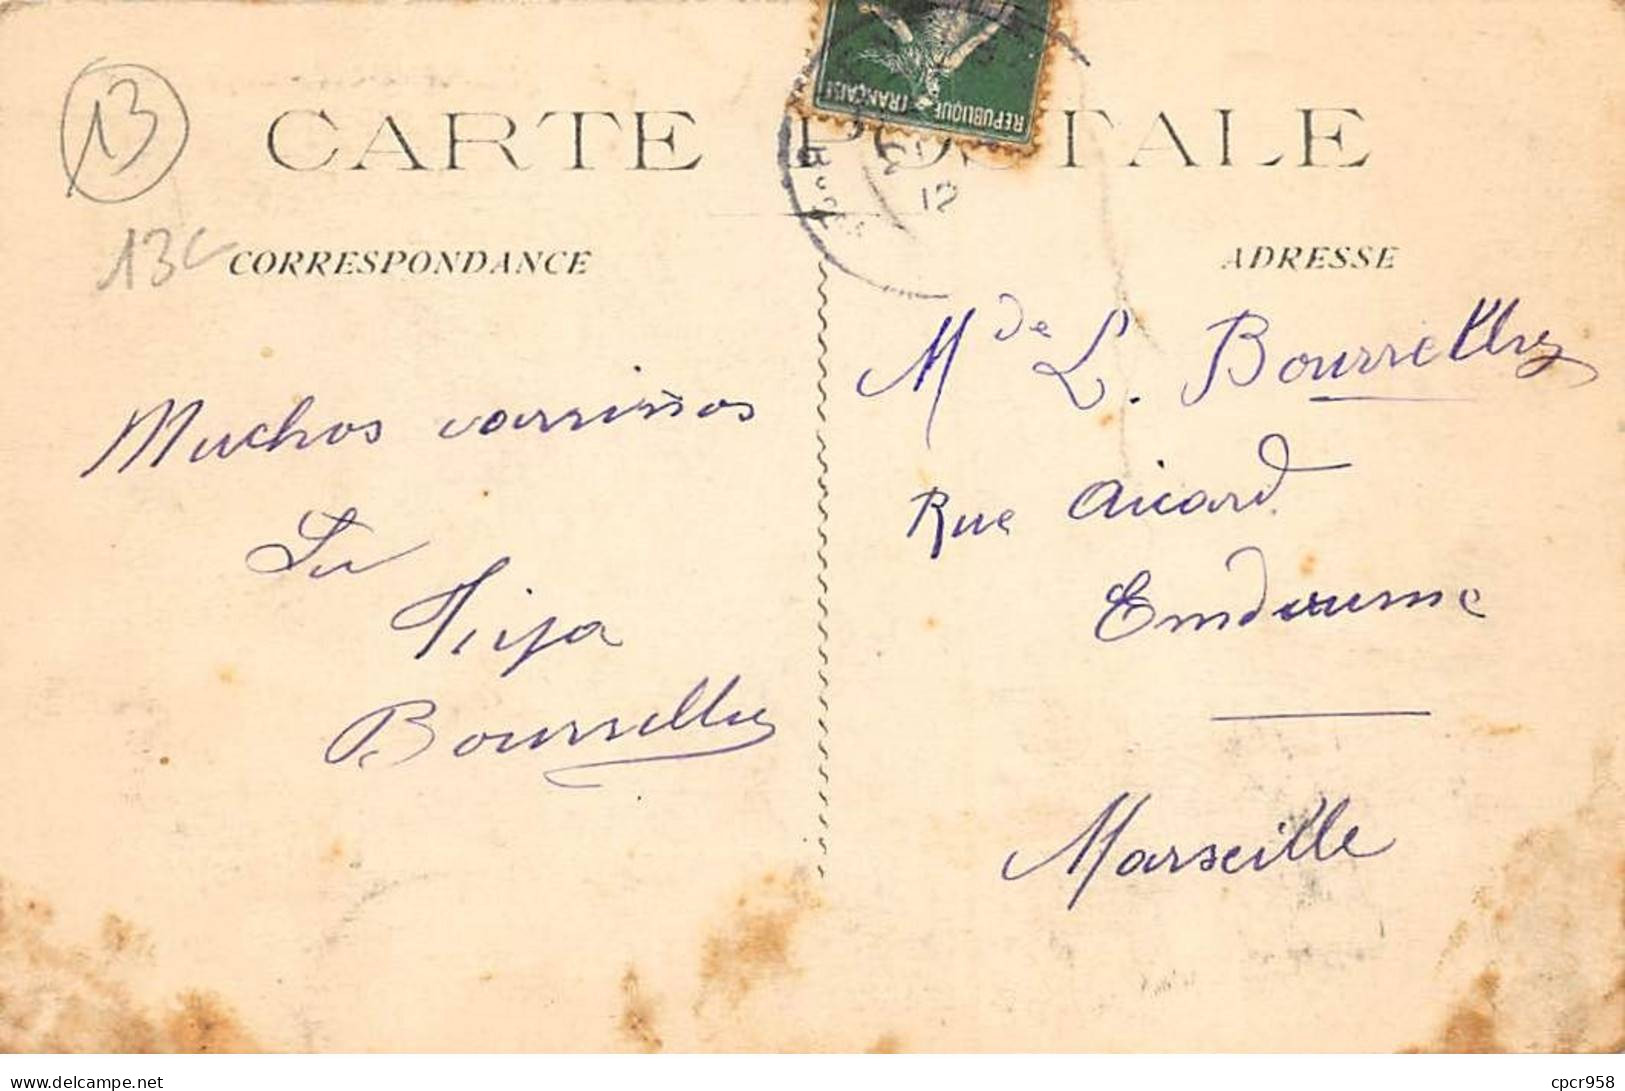 13
CARTE POSTALE
REPUBLIQUE FRANÇAISE
12
13c
CORRESPONDANCE
ADRESSE
Muchos carrissos
Su
Bourrelly
Mde L. Bourrelly
Rue Aicard
Endoume
Marseille
delcampe.net
cpcr958